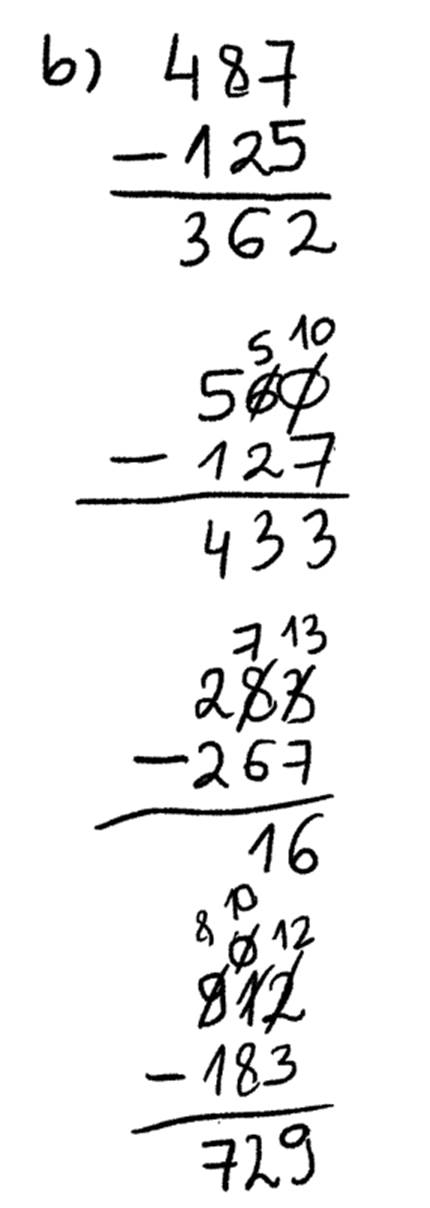 b) 487
-125
362
5 10
560
- 127
433
7 13
283
-267
16
10
8 0 12
912
- 183
729